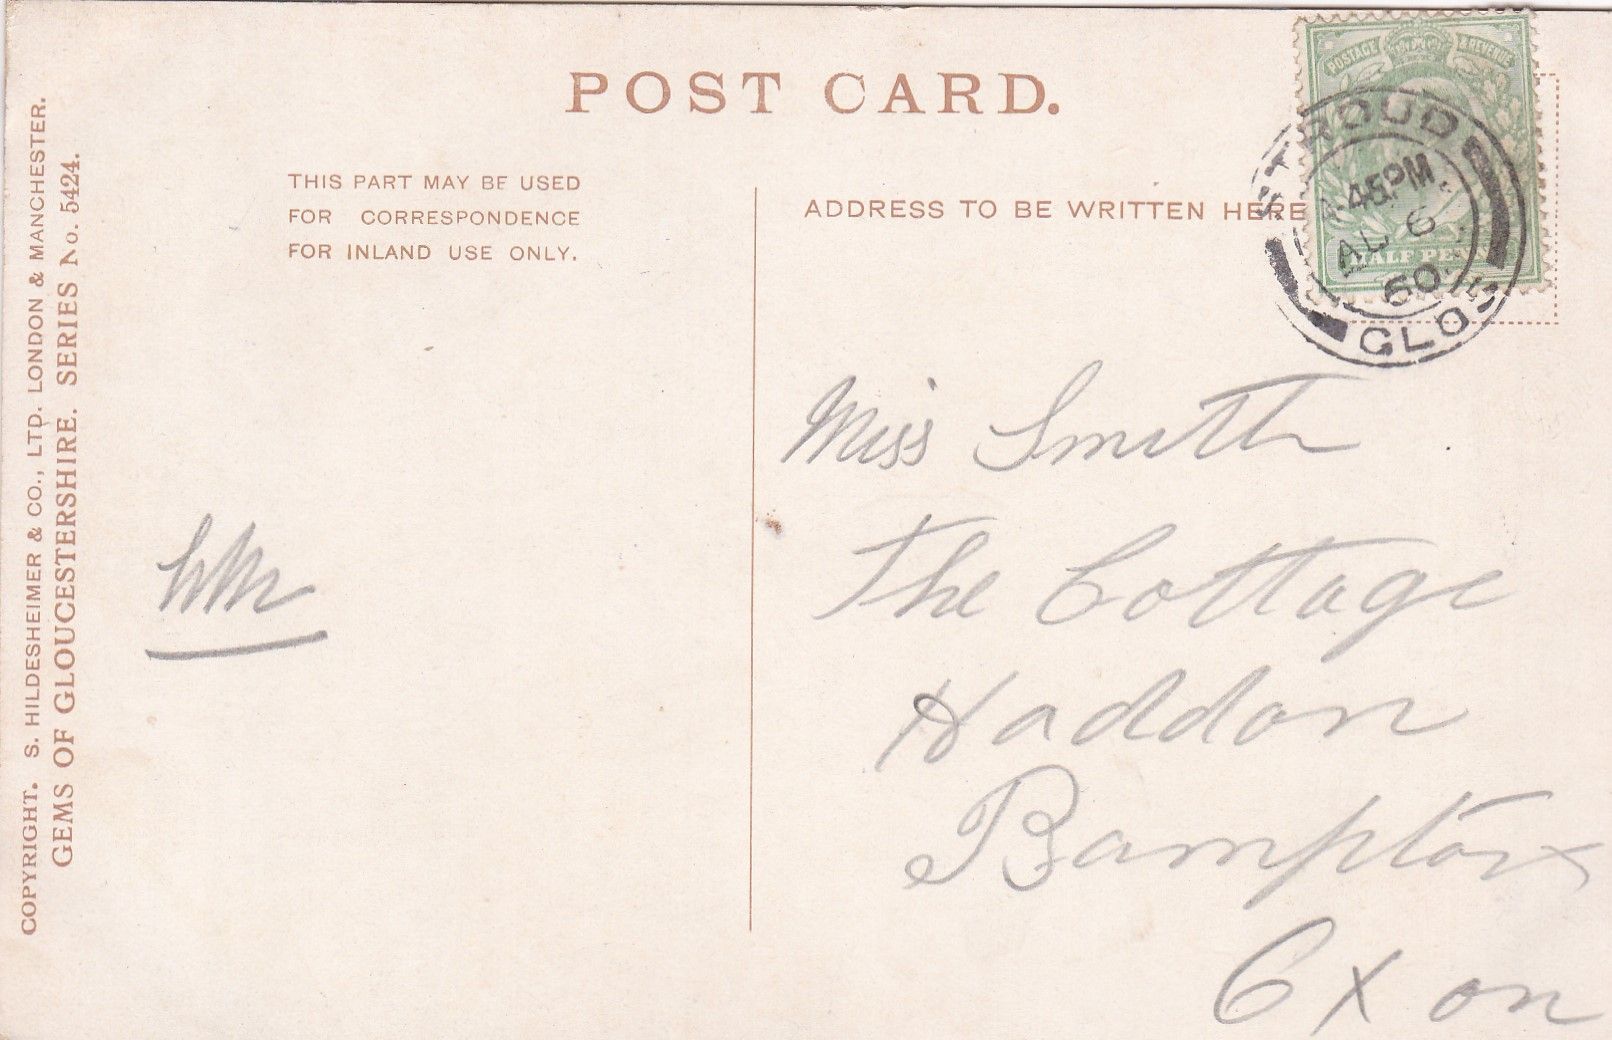 POST CARD.
THIS PART MAY BE USED
FOR CORRESPONDENCE
FOR INLAND USE ONLY.
ADDRESS TO BE WRITTEN HERE
POSTAGE & REVENUE
STROUD
45PM
AU 6
GLOS
COPYRIGHT. S. HILDESHEIMER & CO., LTD. LONDON & MANCHESTER.
GEMS OF GLOUCESTERSHIRE. SERIES No. 5424.
Miss Smith
The Cottage
Haddon
Bampton
Oxon